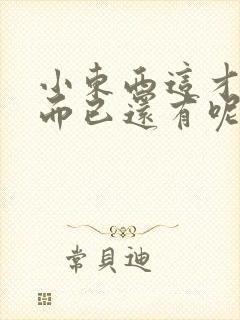 小東西這才
而已還有呢
常貝迪